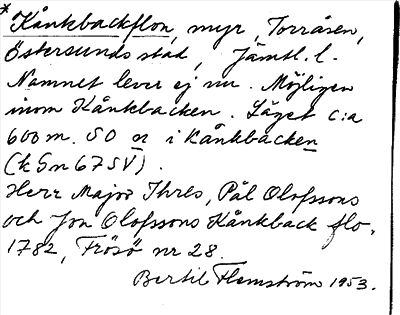 * Kånkbackflon, myr, Torråsen,
Östersunds stad, Jämtl. l.
Namnet lever ej nu. Möjligen
inom Kånkbacken. Läget c:a
600 m. SO n i Kånkbacken
(k Sn 67 SV).
Herr Major Thres, Pål Olofssons
och Jon Olofssons Kånkback flo.
1782, Frösö nr 28.
Bertil Flemström 1953.